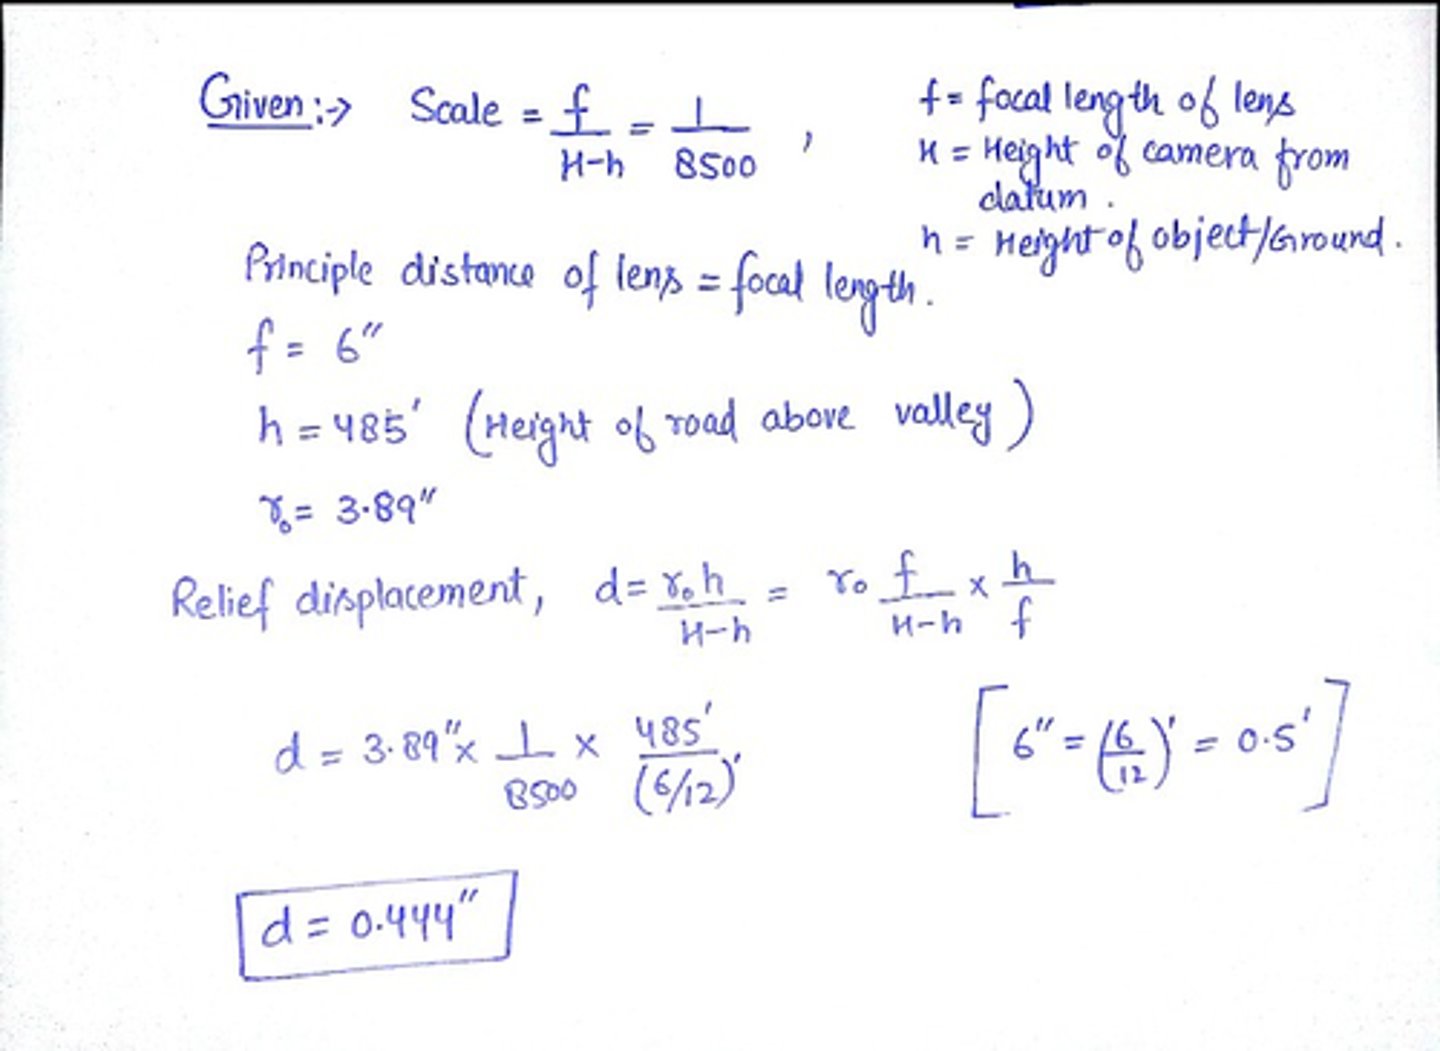 Given :→ Scale = f/H-h = 1/8500 ,
f = focal length of lens
H = Height of camera from
datum .
h = Height of object/Ground .
Principle distance of lens = focal length .
f = 6"
h = 485' (Height of road above valley)
r₀ = 3.89"
Relief displacement, d = r₀h/H-h = r₀ f/H-h × h/f
d = 3.89" × 1/8500 × 485'/(6/12)' [6" = (6/12)' = 0.5']
d = 0.444"